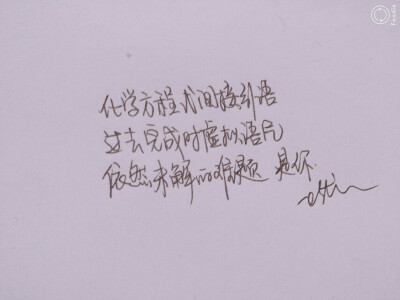 化学方程式间接引语
过去完成时虚拟语气
依然未解的难题 是你.